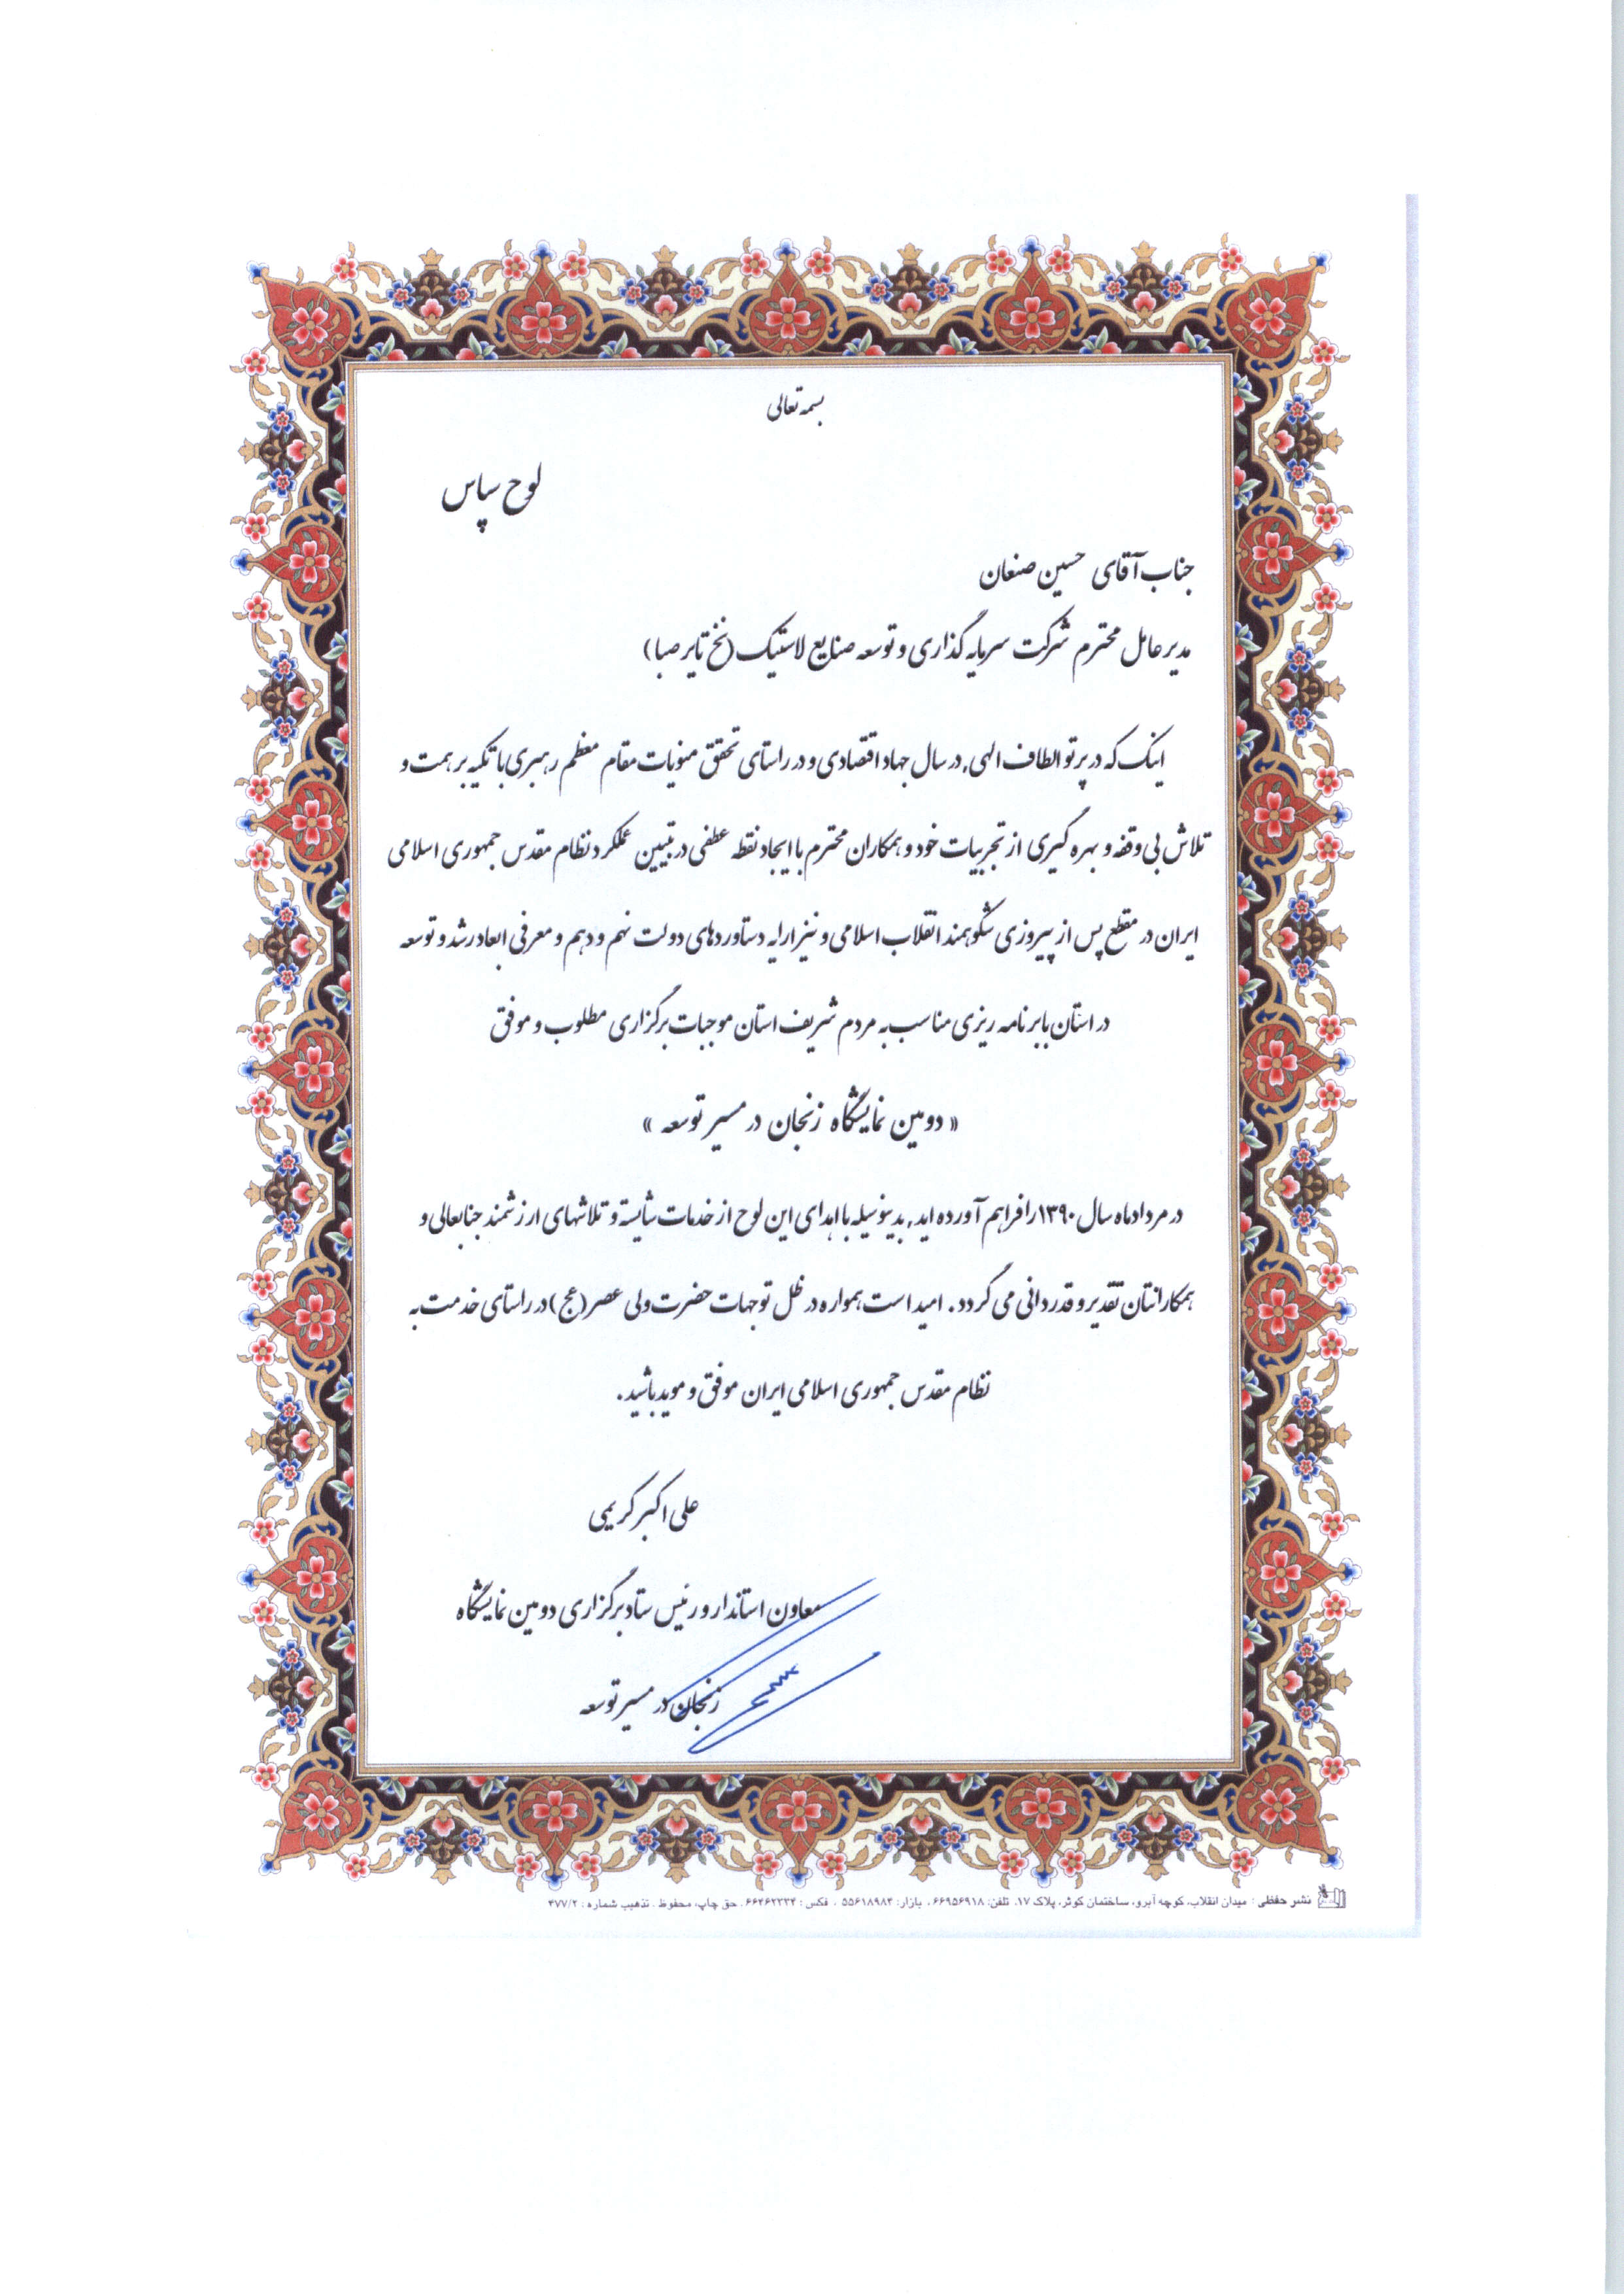 بسمه تعالی
لوح سپاس
جناب آقای حسین صنعان
مدیرعامل محترم شرکت سرمایه گذاری و توسعه صنایع لاستیک (نخ تایر صبا)
اینک که در پرتو الطاف الهی, در سال جهاد اقتصادی و در راستای تحقق منویات مقام معظم رهبری با تکیه بر همت و
تلاش بی وقفه و بهره گیری از تجربیات خود و همکاران محترم با ایجاد نقطه عطفی در تبیین عملکرد نظام مقدس جمهوری اسلامی
ایران در مقطع پس از پیروزی شکوهمند انقلاب اسلامی و نیز ارایه دستاوردهای دولت نهم و دهم و معرفی ابعاد رشد و توسعه
در استان با برنامه ریزی مناسب به مردم شریف استان موجبات برگزاری مطلوب و موفق
« دومین نمایشگاه زنجان در مسیر توسعه »
در مردادماه سال ۱۳۹۰ را فراهم آورده اید, بدینوسیله با اهدای این لوح از خدمات شایسته و تلاشهای ارزشمند جنابعالی و
همکارانتان تقدیر و قدردانی می گردد. امید است همواره در ظل توجهات حضرت ولی عصر (عج) در راستای خدمت به
نظام مقدس جمهوری اسلامی ایران موفق و موید باشید.
علی اکبر کریمی
معاون استاندار و رئیس ستاد برگزاری دومین نمایشگاه
زنجان در مسیر توسعه
نشر حفظی : میدان انقلاب، کوچه آبرو، ساختمان کوثر، پلاک ۱۷. تلفن: ۶۶۹۵۶۹۱۸ ، بازار: ۵۵۶۱۸۹۸۴ ، فکس : ۶۶۴۶۲۳۳۴ . حق چاپ، محفوظ . تذهیب شماره : ۴۷۷/۲